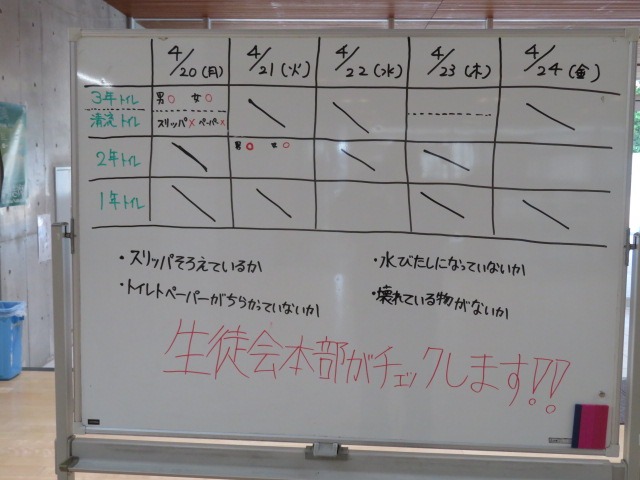 4/20(月) 4/21(火) 4/22(水) 4/23(木) 4/24(金)
3年トイレ 男○ 女○
清流トイレ スリッパ× ペーパー×
2年トイレ 男○ 女○
1年トイレ
・スリッパそろえているか
・水びたしになっていないか
・トイレトペーパーがちらかっていないか
・壊れている物がないか
生徒会本部がチェックします!!